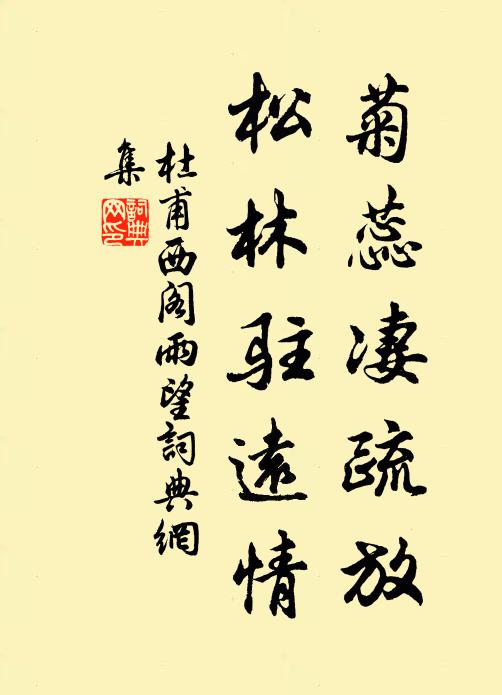 菊蕊凄疏放
松林駐遠情
杜甫西閣雨望詞典網
集
詞典
网印